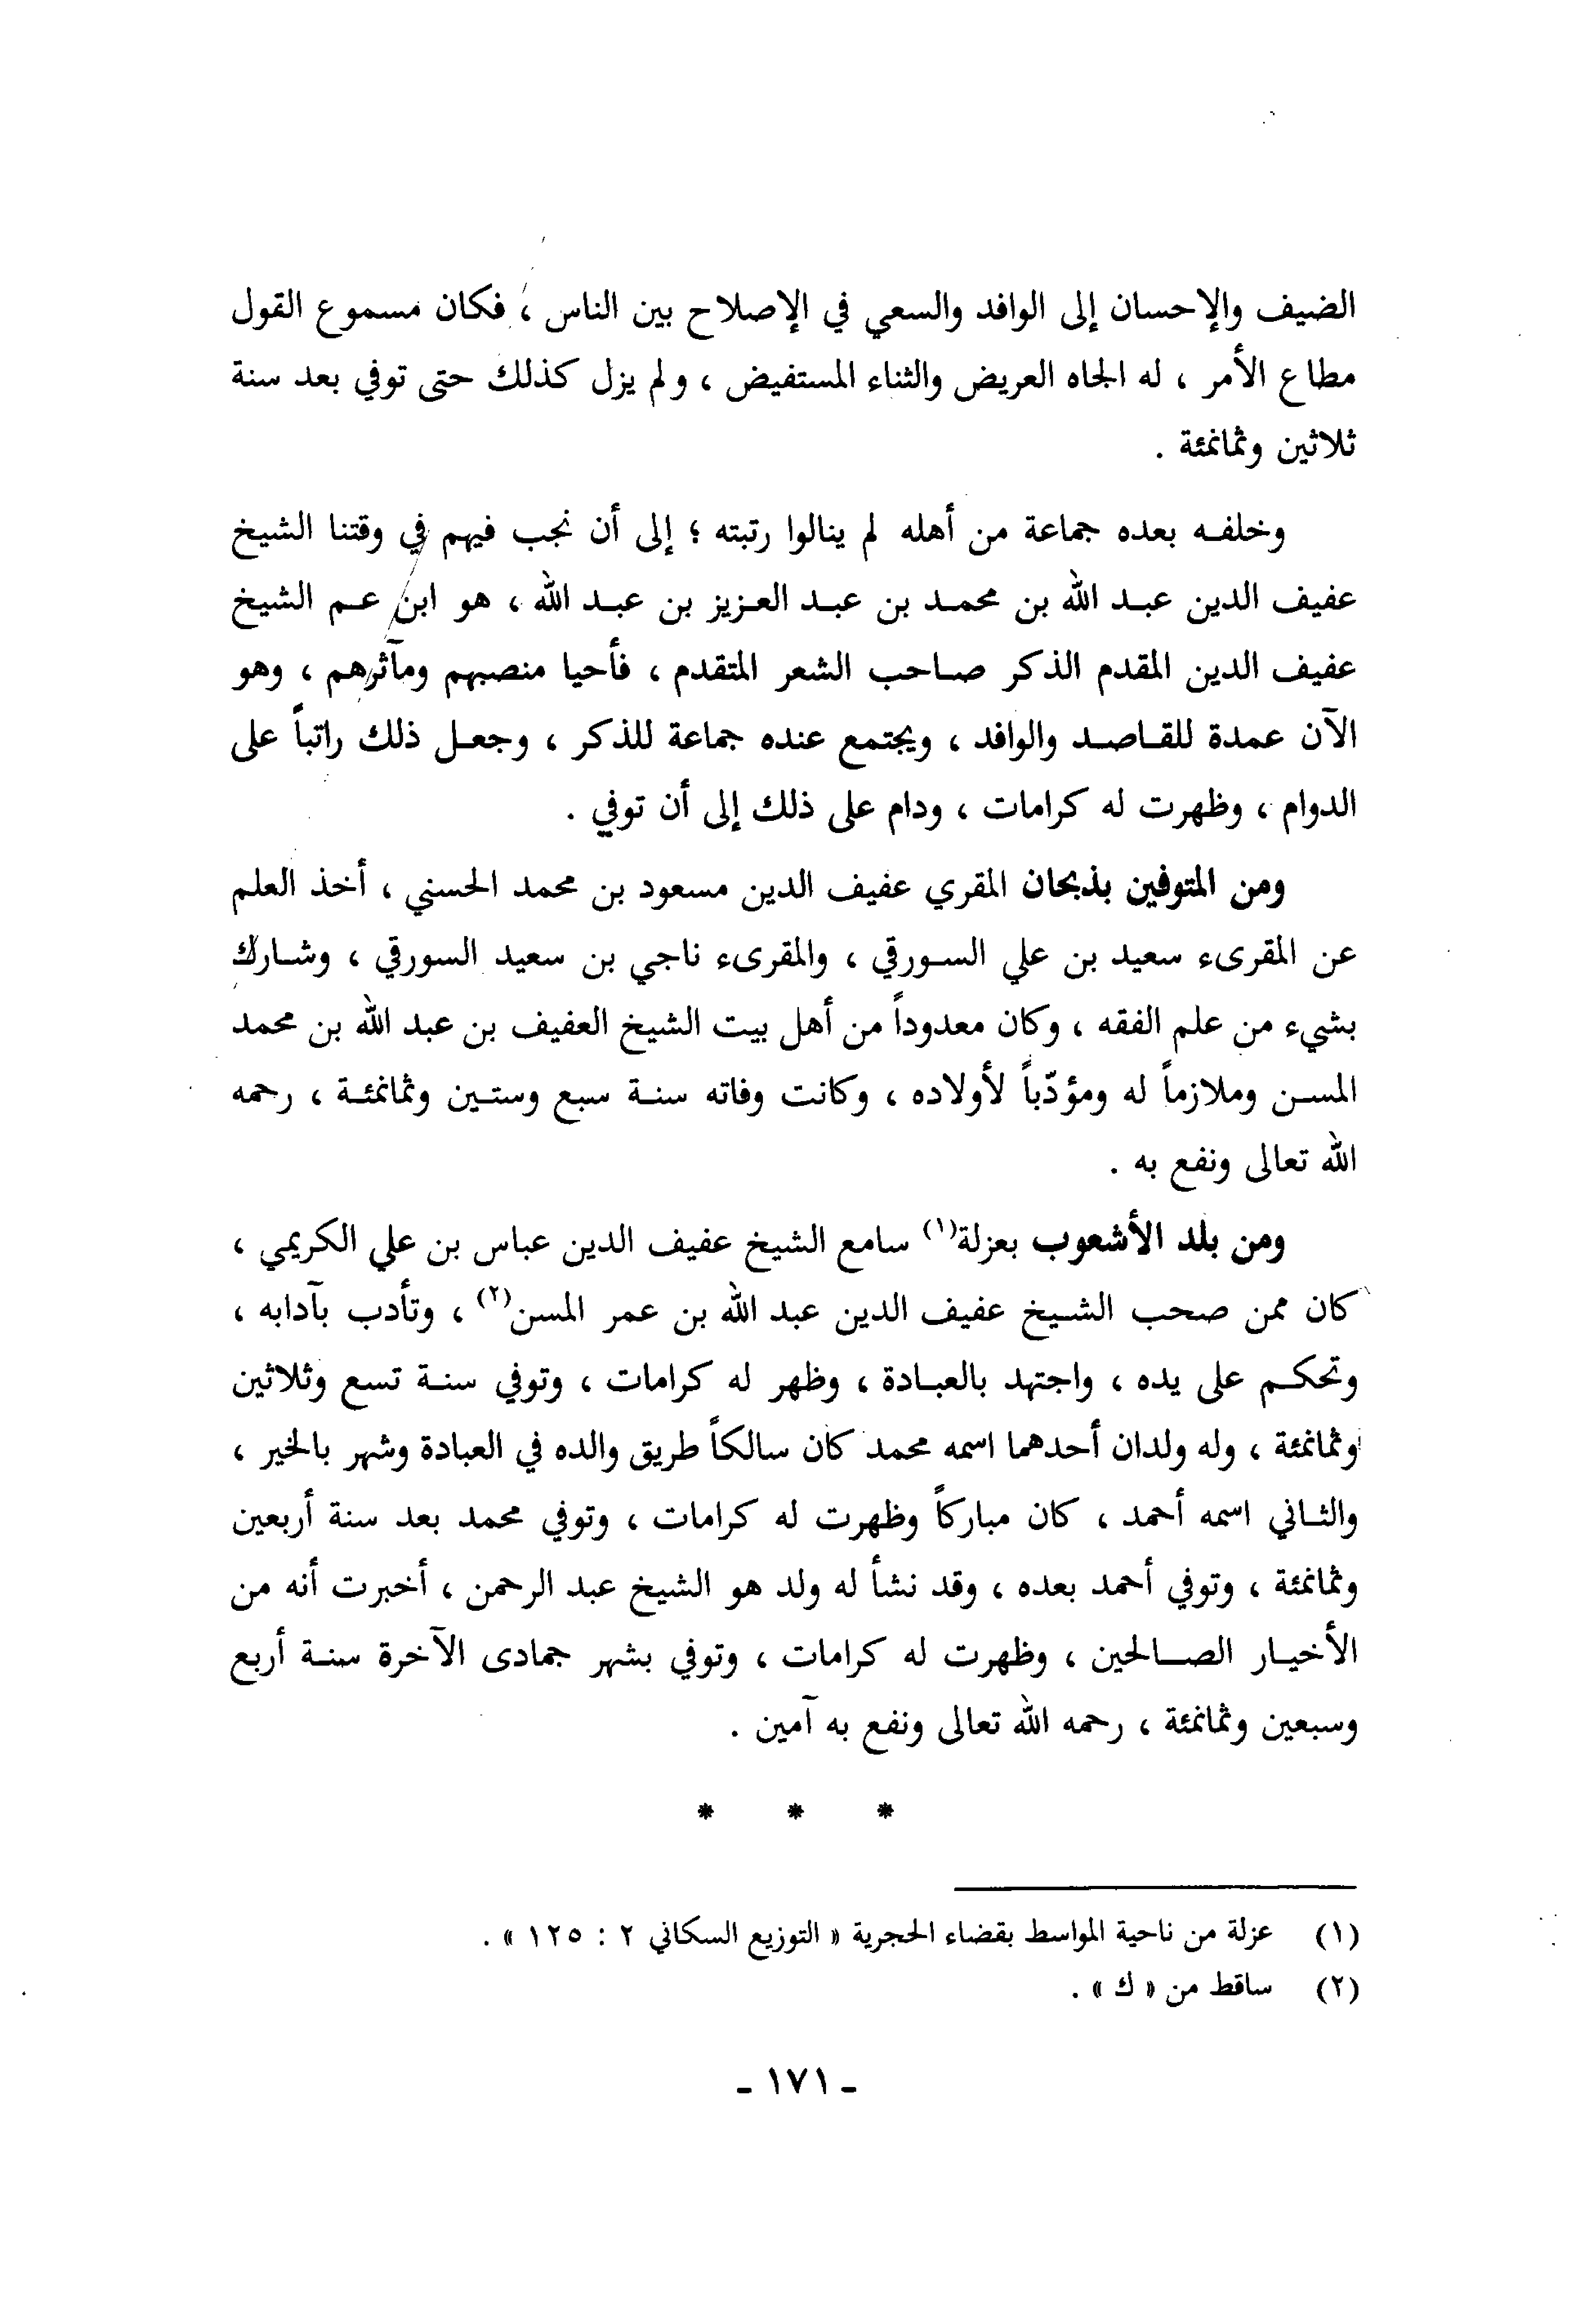 الضيف والإحسان إلى الوافد والسعي في الإصلاح بين الناس ، فكان مسموع القول
مطاع الأمر ، له الجاه العريض والثناء المستفيض ، ولم يزل كذلك حتى توفي بعد سنة
ثلاثين وثمانمئة .
وخلفه بعده جماعة من أهله لم ينالوا رتبته ؛ إلى أن نجب فيهم في وقتنا الشيخ
عفيف الدين عبد الله بن محمد بن عبد العزيز بن عبد الله ، هو ابن عم الشيخ
عفيف الدين المقدم الذكر صاحب الشعر المتقدم ، فأحيا منصبهم ومآثرهم ، وهو
الآن عمدة للقاصد والوافد ، ويجتمع عنده جماعة للذكر ، وجعل ذلك راتباً على
الدوام ، وظهرت له كرامات ، ودام على ذلك إلى أن توفي .
ومن المتوفين بذبحان المقري عفيف الدين مسعود بن محمد الحسني ، أخذ العلم
عن المقرىء سعيد بن علي السورقي ، والمقرىء ناجي بن سعيد السورقي ، وشارك
بشيء من علم الفقه ، وكان معدوداً من أهل بيت الشيخ العفيف بن عبد الله بن محمد
المسن وملازماً له ومؤدّباً لأولاده ، وكانت وفاته سنة سبع وستين وثمانمئة ، رحمه
الله تعالى ونفع به .
ومن بلد الأشعوب بعزلة(١) سامع الشيخ عفيف الدين عباس بن علي الكريمي ،
كان ممن صحب الشيخ عفيف الدين عبد الله بن عمر المسن(٢) ، وتأدب بآدابه ،
وتحكم على يده ، واجتهد بالعبادة ، وظهر له كرامات ، وتوفي سنة تسع وثلاثين
وثمانمئة ، وله ولدان أحدهما اسمه محمد كان سالكاً طريق والده في العبادة وشهر بالخير ،
والثاني اسمه أحمد ، كان مباركاً وظهرت له كرامات ، وتوفي محمد بعد سنة أربعين
وثمانمئة ، وتوفي أحمد بعده ، وقد نشأ له ولد هو الشيخ عبد الرحمن ، أخبرت أنه من
الأخيار الصالحين ، وظهرت له كرامات ، وتوفي بشهر جمادى الآخرة سنة أربع
وسبعين وثمانمئة ، رحمه الله تعالى ونفع به آمين .
* * *
(١) عزلة من ناحية المواسط بقضاء الحجرية « التوزيع السكاني ٢ : ١٢٥ » .
(٢) ساقط من « ك » .
- ١٧١ -